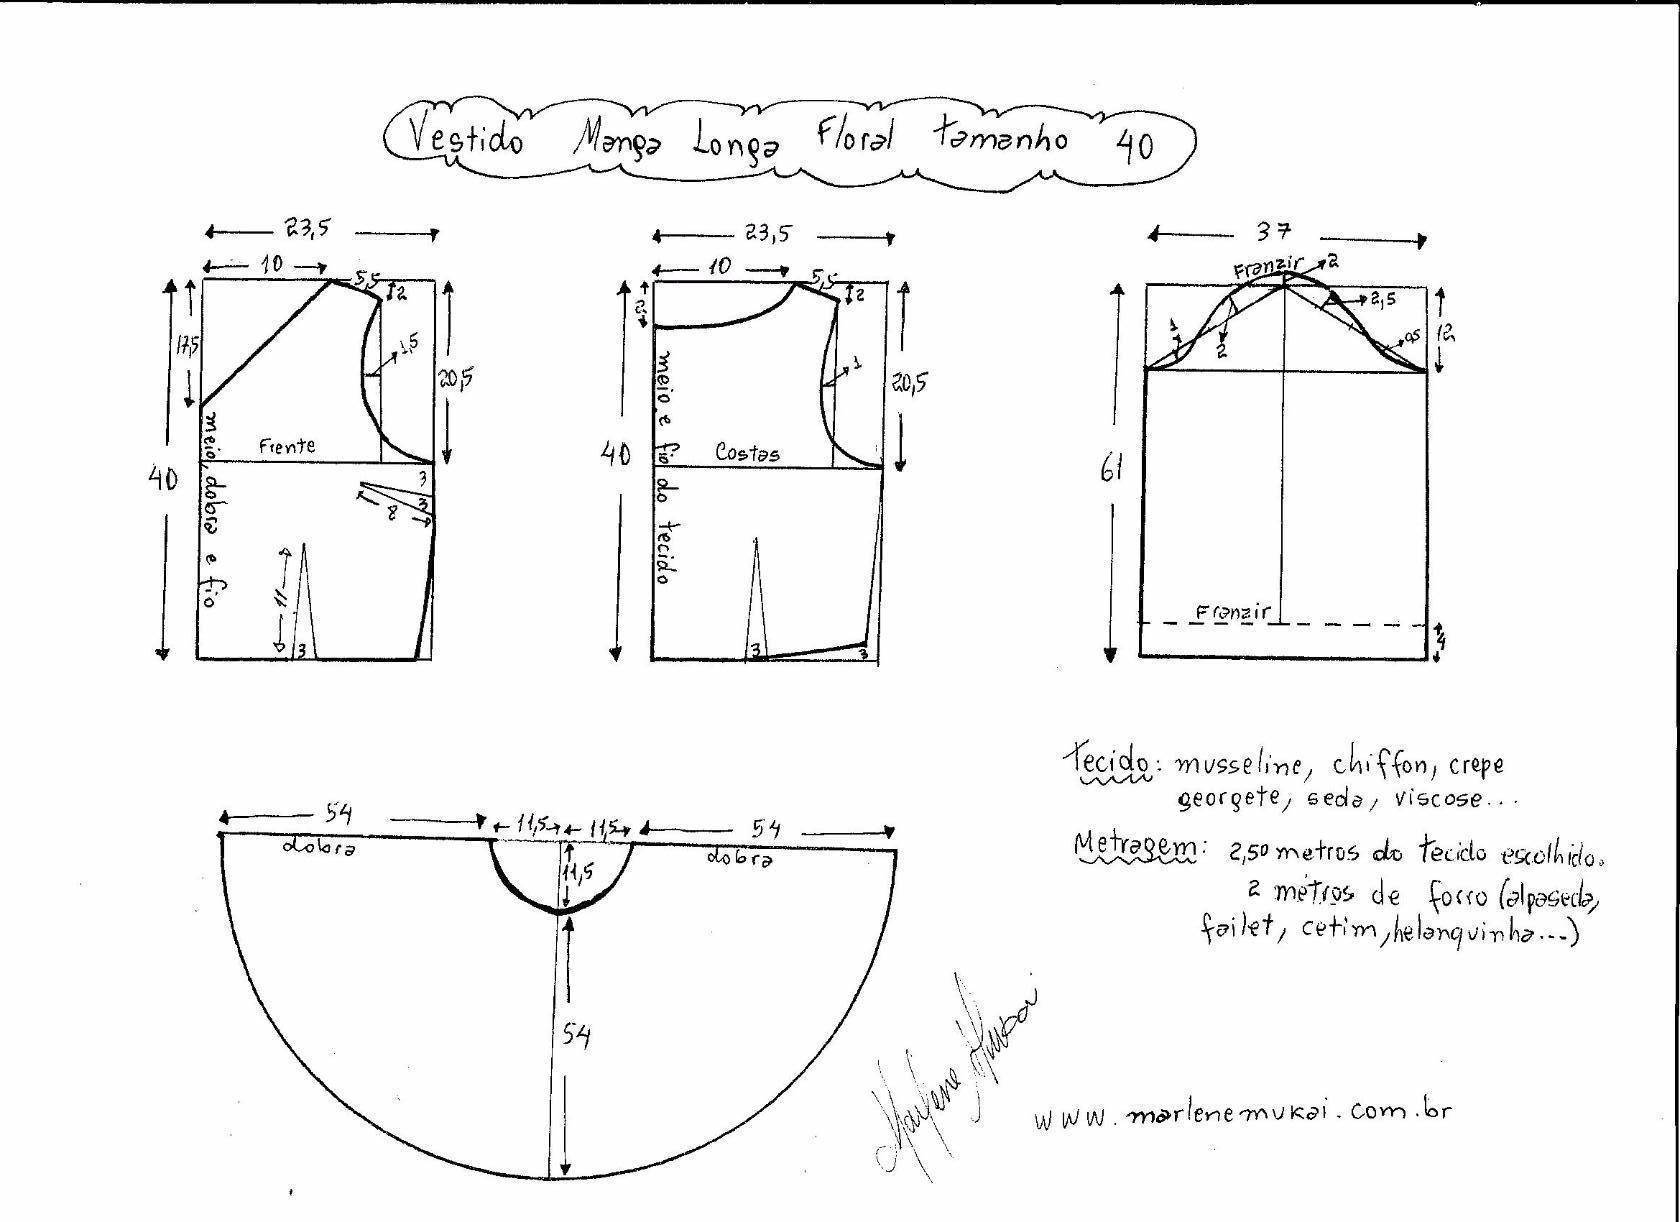 Vestido Manga Longa Floral tamanho 40
23,5
10
5,5
2
17,5
1,5
20,5
40
Frente
meio, dobra e fio
3
3
8
11
3
23,5
10
5,5
2
2
1
20,5
40
Costas
meio e fio do tecido
3
3
37
Franzir
2
2,5
1
2
0,5
12
61
Franzir
4
54
11,5
11,5
54
dobra
dobra
11,5
54
Tecido: musseline, chiffon, crepe
georgete, seda, viscose...
Metragem: 2,50 metros do tecido escolhido.
2 metros de forro (alpaseda,
failet, cetim, helanquinha...)
Marlene Mukai
www.marlenemukai.com.br